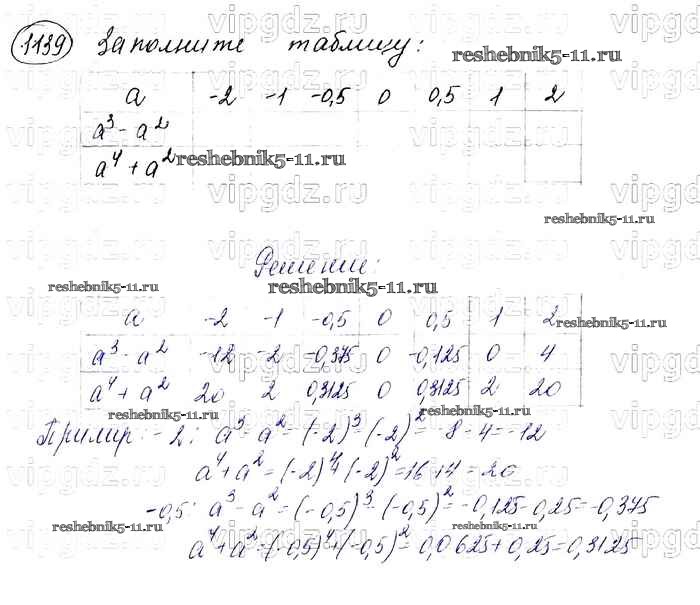 1139 Заполните таблицу:
reshebnik5-11.ru
a -2 -1 -0,5 0 0,5 1 2
a³ - a²
a⁴ + a²
reshebnik5-11.ru
reshebnik5-11.ru
Решение:
reshebnik5-11.ru
reshebnik5-11.ru
a -2 -1 -0,5 0 0,5 1 2
reshebnik5-11.ru
a³ - a² -12 -2 -0,375 0 -0,125 0 4
a⁴ + a² 20 2 0,3125 0 0,3125 2 20
reshebnik5-11.ru
reshebnik5-11.ru
Пример: -2: a³ - a² = (-2)³ - (-2)² = -8 - 4 = -12
a⁴ + a² = (-2)⁴ + (-2)² = 16 + 4 = 20
-0,5: a³ - a² = (-0,5)³ - (-0,5)² = -0,125 - 0,25 = -0,375
reshebnik5-11.ru
reshebnik5-11.ru
a⁴ + a² = (-0,5)⁴ + (-0,5)² = 0,0625 + 0,25 = 0,3125
vipgdz.ru